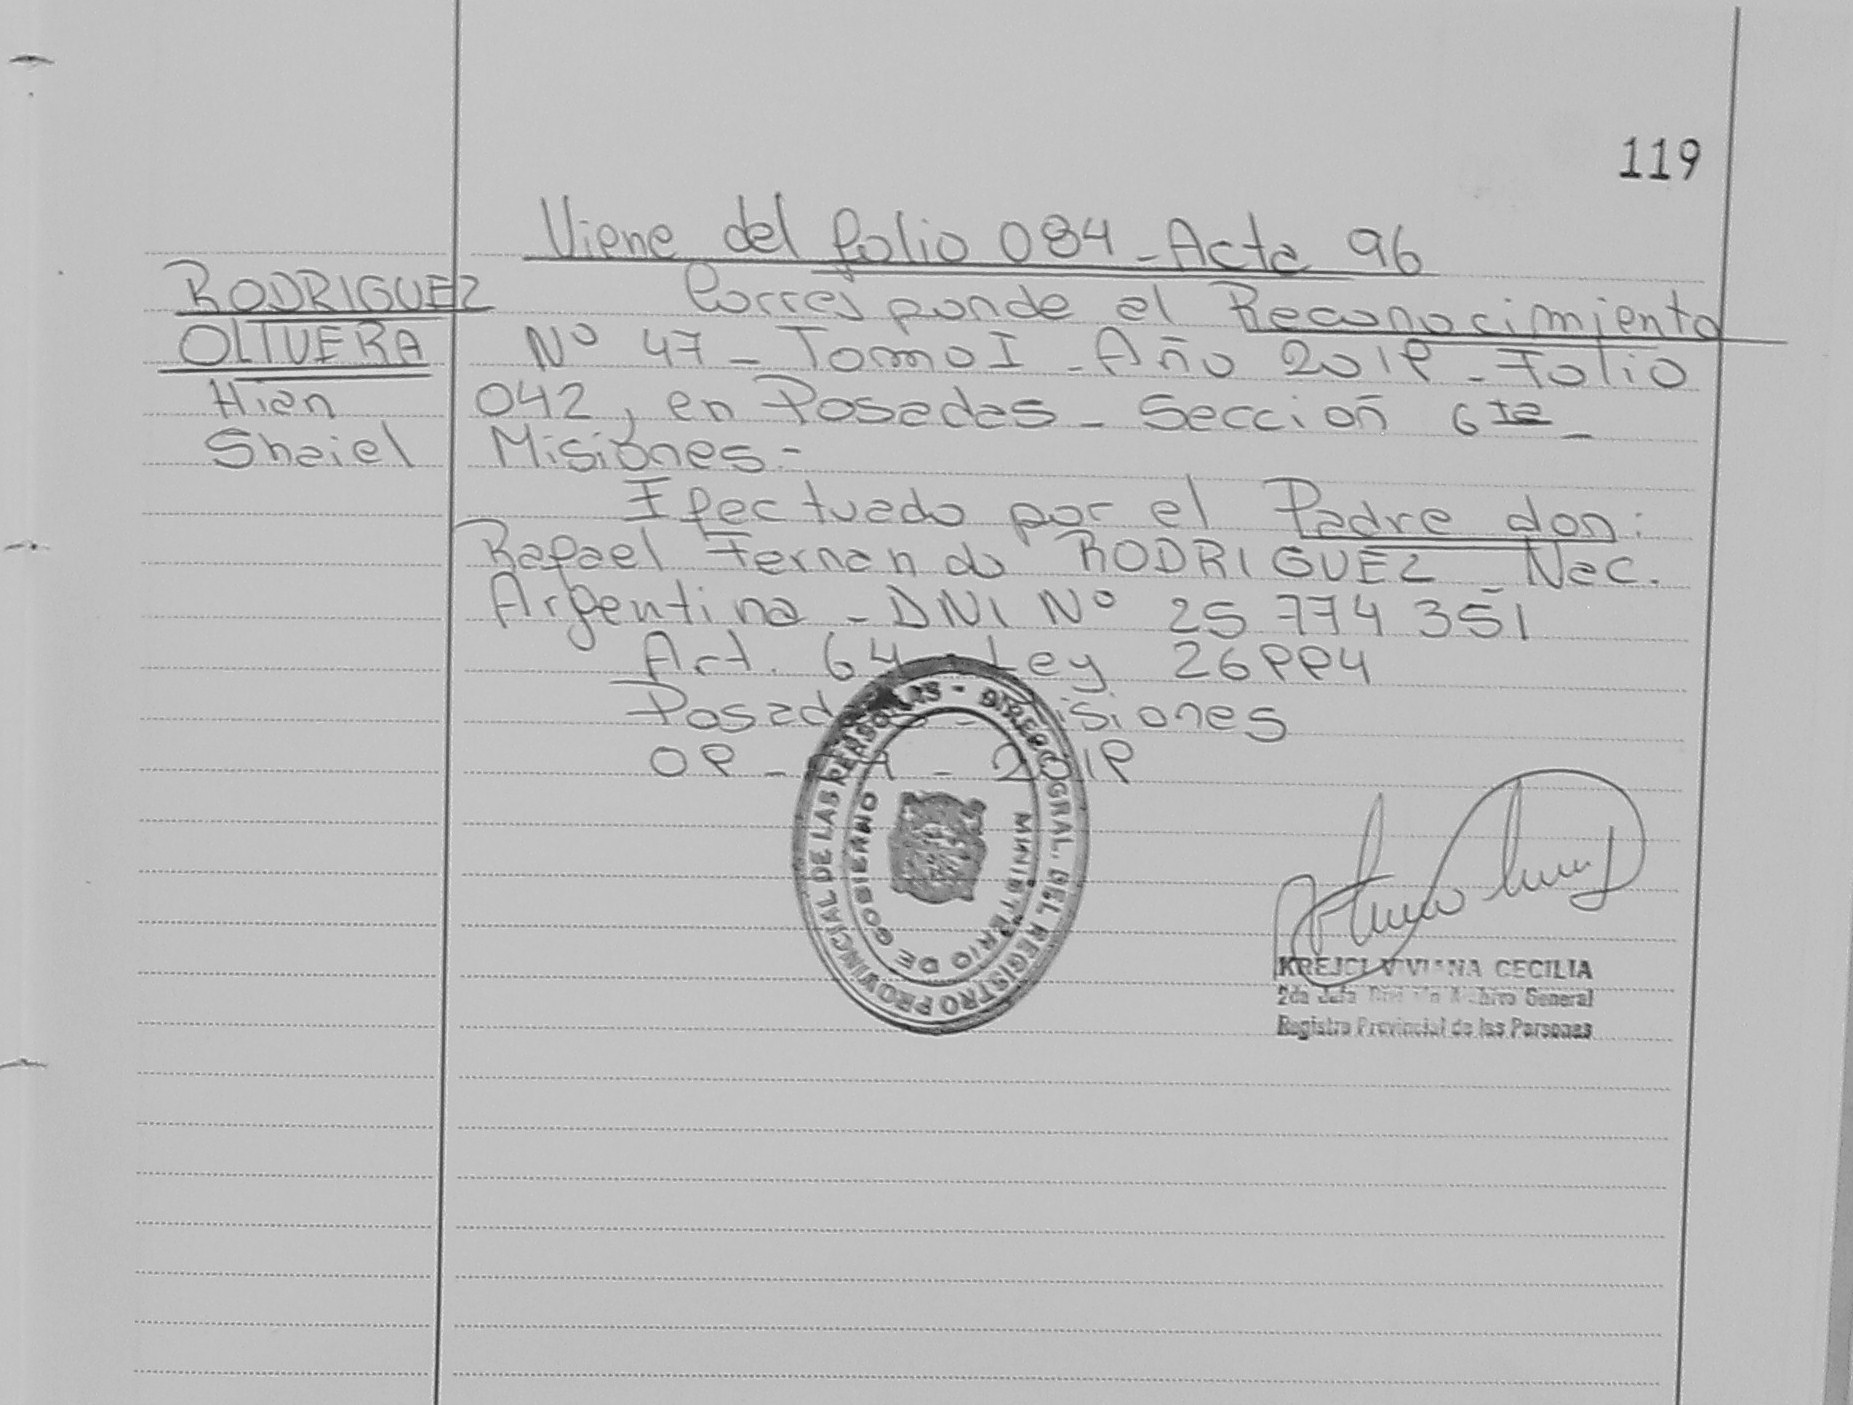 119
Viene del folio 084 - Acta 96
RODRIGUEZ
OLIVERA
Hian
Shaiel
Corresponde el Reconocimiento
Nº 47 - Tomo I - Año 2019 - Folio
042, en Posadas - Sección 6ta -
Misiones.-
Efectuado por el Padre don:
Rafael Fernando RODRIGUEZ - Nac.
Argentina - DNI Nº 25 774 351
Art. 64 - Ley 26994
Posadas - Misiones
09 - - 2019
DIREC. GRAL. DEL REGISTRO PROVINCIAL DE LAS PERSONAS -
MINISTERIO DE GOBIERNO
KREJCI VIVIANA CECILIA
2da Jefa Archivo General
Registro Provincial de las Personas